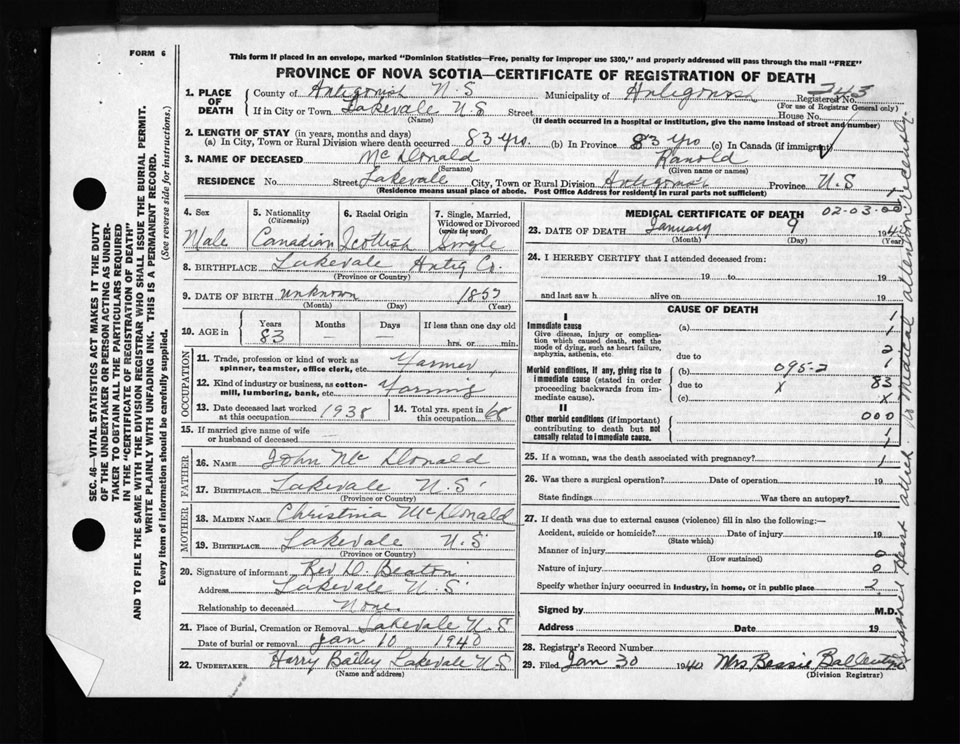 FORM 6
This form if placed in an envelope, marked "Dominion Statistics—Free, penalty for improper use $300," and properly addressed will pass through the mail "FREE"
PROVINCE OF NOVA SCOTIA—CERTIFICATE OF REGISTRATION OF DEATH
1. PLACE OF DEATH
County of Antigonish N.S Municipality of Antigonish Registered No. 743
(For use of Registrar General only)
If in City or Town Lakevale N.S Street House No.
(Name) (If death occurred in a hospital or institution, give the name instead of street and number)
2. LENGTH OF STAY (in years, months and days)
(a) In City, Town or Rural Division where death occurred 83 yrs. (b) In Province 83 yrs (c) In Canada (if immigrant)
3. NAME OF DECEASED McDonald Ranold
(Surname) (Given name or names)
RESIDENCE No. Street Lakevale City, Town or Rural Division Antigonish Province N.S
(Residence means usual place of abode. Post Office Address for residents in rural parts not sufficient)
4. Sex 5. Nationality (Citizenship) 6. Racial Origin 7. Single, Married, Widowed or Divorced (write the word)
Male Canadian Scottish Single
8. BIRTHPLACE Lakevale Antig Co.
(Province or Country)
9. DATE OF BIRTH unknown 1857
(Month) (Day) (Year)
10. AGE in Years Months Days If less than one day old
83 — — hrs. or min.
OCCUPATION
11. Trade, profession or kind of work as spinner, teamster, office clerk, etc. Farmer
12. Kind of industry or business, as cotton-mill, lumbering, bank, etc. Farming
13. Date deceased last worked at this occupation 1938 14. Total yrs. spent in this occupation 68
15. If married give name of wife or husband of deceased —
FATHER
16. NAME John McDonald
17. BIRTHPLACE Lakevale N.S
(Province or Country)
MOTHER
18. MAIDEN NAME Christina McDonald
19. BIRTHPLACE Lakevale N.S
(Province or Country)
20. Signature of informant Rev D. Beaton
Address Lakevale N.S
Relationship to deceased None
21. Place of Burial, Cremation or Removal Lakevale N.S
Date of burial or removal Jan 10 1940
22. UNDERTAKER Harry Bailey Lakevale N.S
(Name and address)
MEDICAL CERTIFICATE OF DEATH 02-03-00
23. DATE OF DEATH January 9 1940
(Month) (Day) (Year)
24. I HEREBY CERTIFY that I attended deceased from:
19 to 19
and last saw h alive on 19
CAUSE OF DEATH
I
Immediate cause (a) 1
Give disease, injury or complication which caused death, not the mode of dying, such as heart failure, asphyxia, asthenia, etc. 1
due to 2
Morbid conditions, if any, giving rise to immediate cause (stated in order proceeding backwards from immediate cause). (b) 095-2 1
due to x 83
(c) x
II
Other morbid conditions (if important) contributing to death but not causally related to immediate cause. 000
1
25. If a woman, was the death associated with pregnancy? 1
26. Was there a surgical operation? Date of operation 19
State findings Was there an autopsy?
27. If death was due to external causes (violence) fill in also the following:—
Accident, suicide or homicide? Date of injury 19
(State which)
Manner of injury 0
(How sustained)
Nature of injury 0
Specify whether injury occurred in industry, in home, or in public place 2
Signed by M.D.
Address Date 19
28. Registrar's Record Number
29. Filed Jan 30 1940 Mrs Bessie
(Division Registrar)
Heart attack no Medical attention recently.
SEC. 46—VITAL STATISTICS ACT MAKES IT THE DUTY
OF THE UNDERTAKER OR PERSON ACTING AS UNDER-
TAKER TO OBTAIN ALL THE PARTICULARS REQUIRED
IN THE "CERTIFICATE OF REGISTRATION OF DEATH" AND TO FILE THE SAME WITH THE DIVISION REGISTRAR WHO SHALL ISSUE THE BURIAL PERMIT.
WRITE PLAINLY WITH UNFADING INK. THIS IS A PERMANENT RECORD.
Every item of information should be carefully supplied. (See reverse side for instructions.)